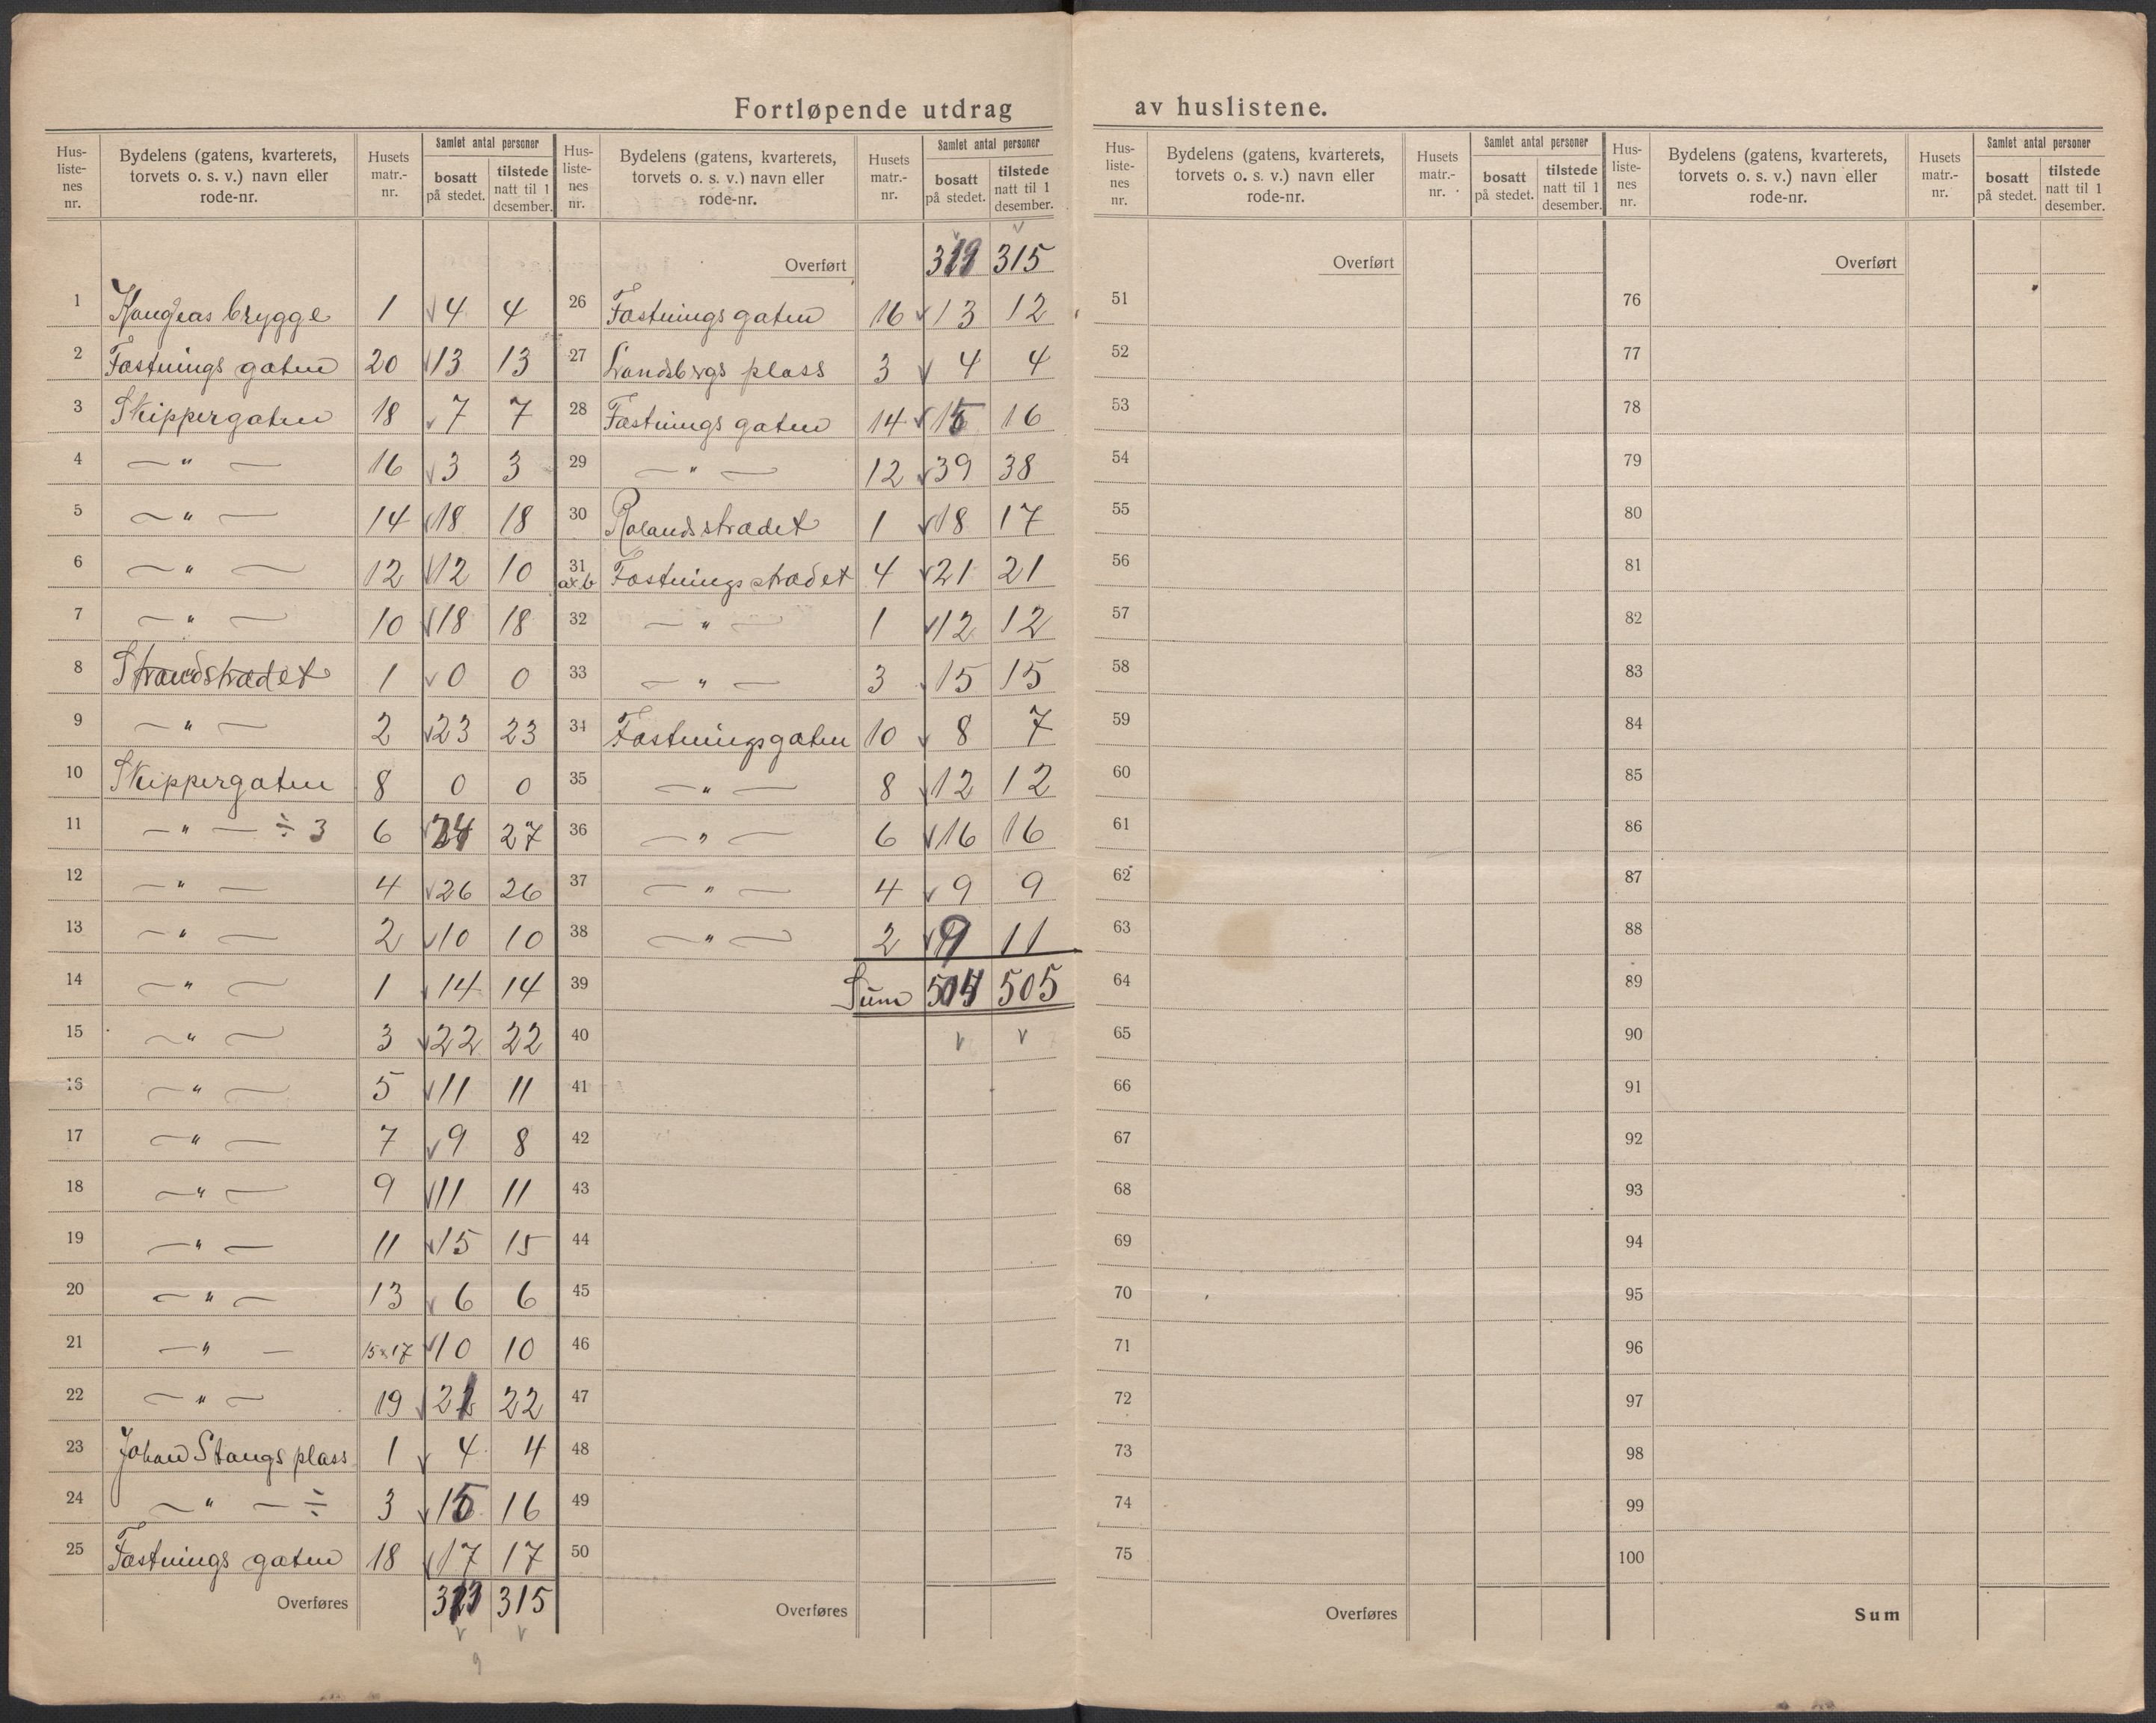 Fortløpende utdrag av huslistene.
Hus-listenes nr. Bydelens (gatens, kvarterets, torvets o. s. v.) navn eller rode-nr. Husets matr.-nr. Samlet antal personer bosatt på stedet. tilstede natt til 1 desember.
1 brygge 1 4 4
2 Fæstnings gaten 20 13 13
3 Skippergaten 18 7 7
4 — " — 16 3 3
5 — " — 14 18 18
6 — " — 12 12 10
7 — " — 10 18 18
8 Strandstrædet 1 0 0
9 — " — 2 23 23
10 Skippergaten 8 0 0
11 — " — ÷ 3 6 24 27
12 — " — 4 26 26
13 — " — 2 10 10
14 — " — 1 14 14
15 — " — 3 22 22
16 — " — 5 11 11
17 — " — 7 9 8
18 — " — 9 11 11
19 — " — 11 15 15
20 — " — 13 6 6
21 — " — 15 x 17 10 10
22 — " — 19 22
23 Johan Stangs plass 1 4 4
24 — " — ÷ 3 15 16
25 Fæstnings gaten 18 17 17
Overføres 315
9
Hus-listenes nr. Bydelens (gatens, kvarterets, torvets o. s. v.) navn eller rode-nr. Husets matr.-nr. Samlet antal personer bosatt på stedet. tilstede natt til 1 desember.
Overført 315
26 Fæstnings gaten 16 13 12
27 plass 3 4 4
28 Fæstnings gaten 14 15 16
29 — " — 12 39 38
30 Rolandsstrædet 1 18 17
31 a x b Fæstnings strædet 4 21 21
32 — " — 1 12 12
33 — " — 3 15 15
34 Fæstningsgaten 10 8 7
35 — " — 8 12 12
36 — " — 6 16 16
37 — " — 4 9 9
38 — " — 2 9 11
39 Sum 505
40
41
42
43
44
45
46
47
48
49
50
Overføres
Hus-listenes nr. Bydelens (gatens, kvarterets, torvets o. s. v.) navn eller rode-nr. Husets matr.-nr. Samlet antal personer bosatt på stedet. tilstede natt til 1 desember.
Overført
51
52
53
54
55
56
57
58
59
60
61
62
63
64
65
66
67
68
69
70
71
72
73
74
75
Overføres
Hus-listenes nr. Bydelens (gatens, kvarterets, torvets o. s. v.) navn eller rode-nr. Husets matr.-nr. Samlet antal personer bosatt på stedet. tilstede natt til 1 desember.
Overført
76
77
78
79
80
81
82
83
84
85
86
87
88
89
90
91
92
93
94
95
96
97
98
99
100
Sum